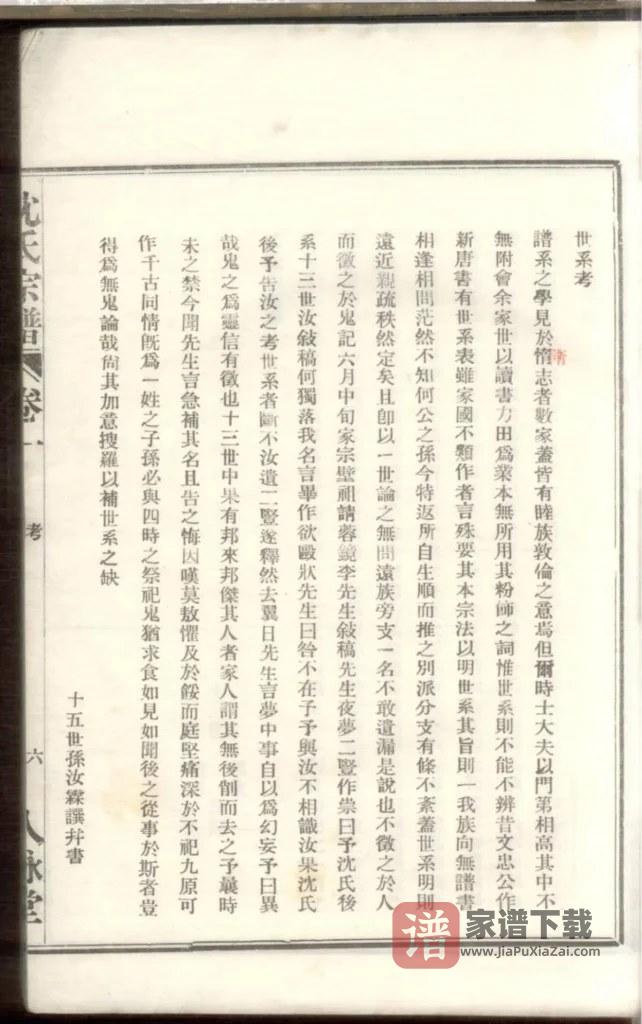 世系考
譜系之學見於惰志者數家蓋皆有睦族敦倫之意焉但爾時士大夫以門第相高其中不
隋
無附會余家世以讀書力田爲業本無所用其粉飾之詞惟世系則不能不辨昔文忠公作
新唐書有世系表雖家國不類作者言殊要其本宗法以明世系其旨則一我族向無譜書
相逢相問茫然不知何公之孫今特返所自生順而推之別派分支有條不紊蓋世系明則
遠近親疏秩然定矣且卽以一世論之無問遠族旁支一名不敢遺漏是說也不徵之於人
而徵之於鬼記六月中旬家宗壁祖請蓉鏡李先生敍稿先生夜夢二豎作祟曰予沈氏後
系十三世汝敍稿何獨落我名言畢作欲毆狀先生曰咎不在子予與汝不相識汝果沈氏
後予告汝之考世系者斷不汝遺二豎遂釋然去翼日先生言夢中事自以爲幻妄予曰異
哉鬼之爲靈信有徵也十三世中果有邦來邦傑其人者家人謂其無後削而去之予曩時
未之禁今聞先生言急補其名且告之悔因嘆莫敖懼及於餒而庭堅痛深於不祀九原可
作千古同情旣爲一姓之子孫必與四時之祭祀鬼猶求食如見如聞後之從事於斯者豈
得爲無鬼論哉尙其加意搜羅以補世系之缺
十五世孫汝霖譔幷書
沈氏宗譜
卷一
考
六
八詠堂
谱
家谱下载
www.JiaPuXiaZai.com